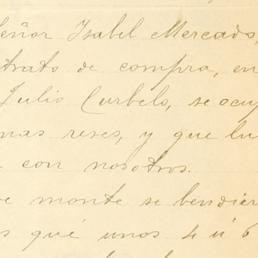 Señor Isabel Mercado,
trato de compra, en
Julio Curbelo, se ocup
nas reses, y que lu
con nosotros.
monte se bendier
qué unos 4 ú 6